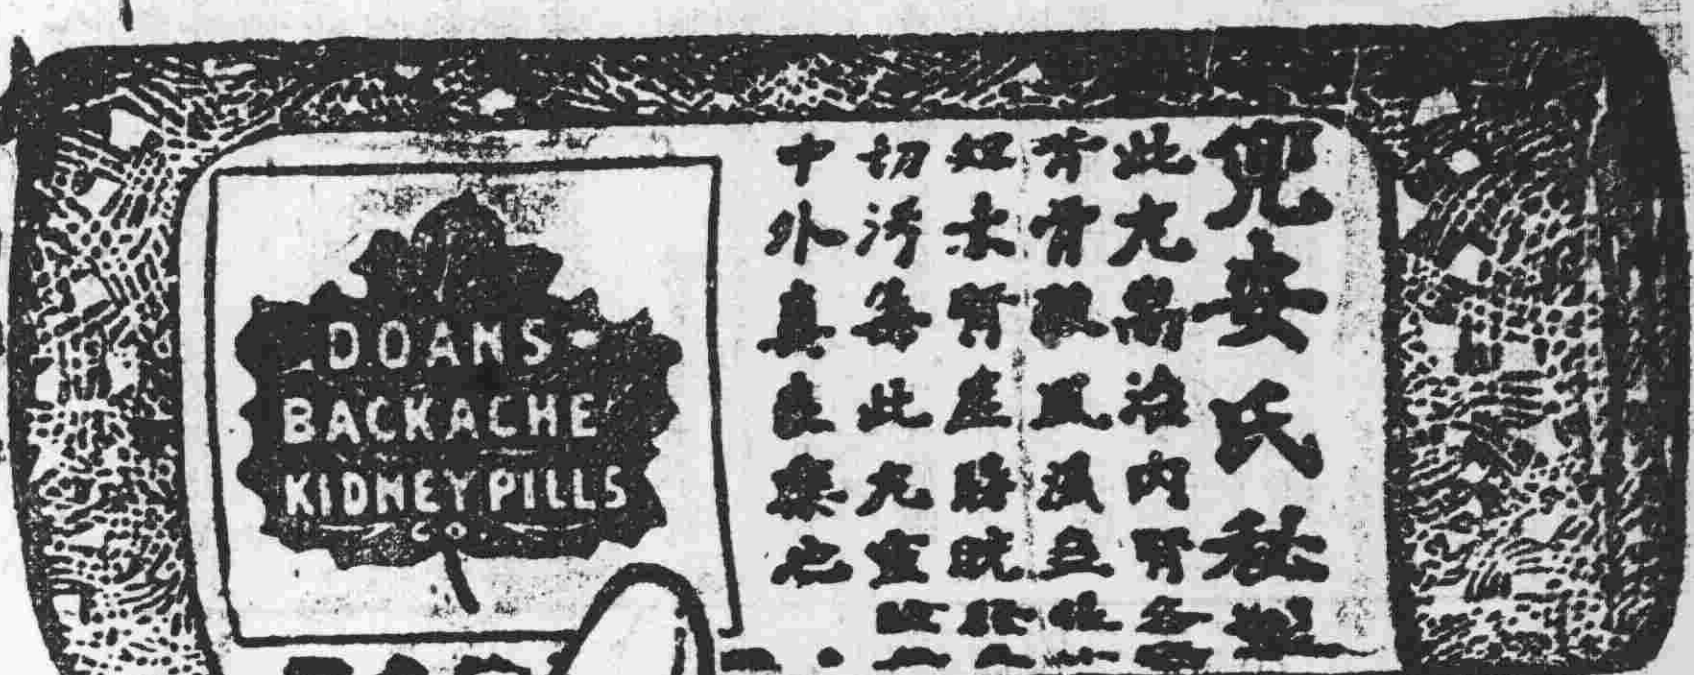 兜安氏秘製
此丸耑治內腎各
背骨酸風濕
短赤腎虛膀胱
切污毒此丸靈
中外真良藥也
DOANS
BACKACHE
KIDNEY PILLS
CO.